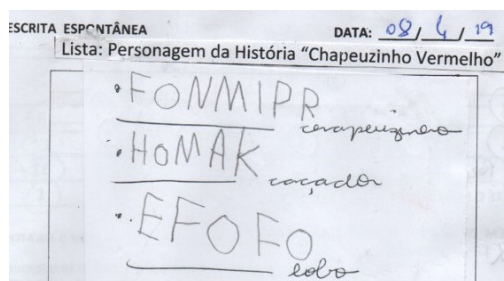 ESCRITA ESPONTÂNEA DATA: 08/4/19
Lista: Personagem da História "Chapeuzinho Vermelho"
• FONMIPR
chapeuzinho
• HOMAK
caçador
• EFOFO
lobo